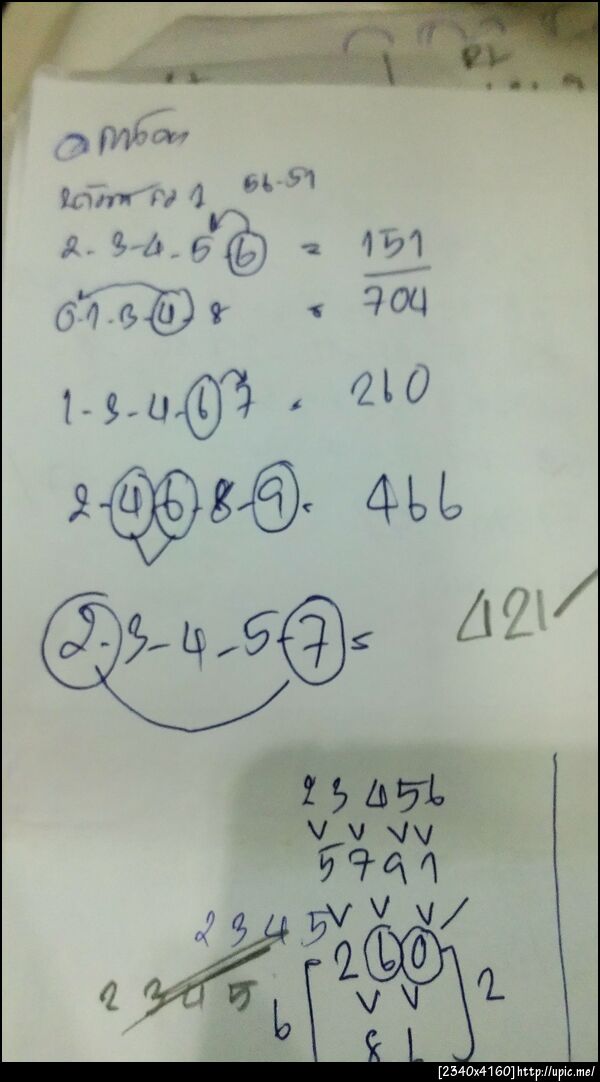 56-51
2-3-4-5-6 = 151
0-1-3-4-8 = 704
1-3-4-6-7 = 260
2-4-6-8-9 = 466
2-3-4-5-7 =
421
2 3 4 5 6
5 7 9 1
2 3 4 5
2 6 0
2 3 4 5
6
2
8 6
[2340x4160]http://upic.me/